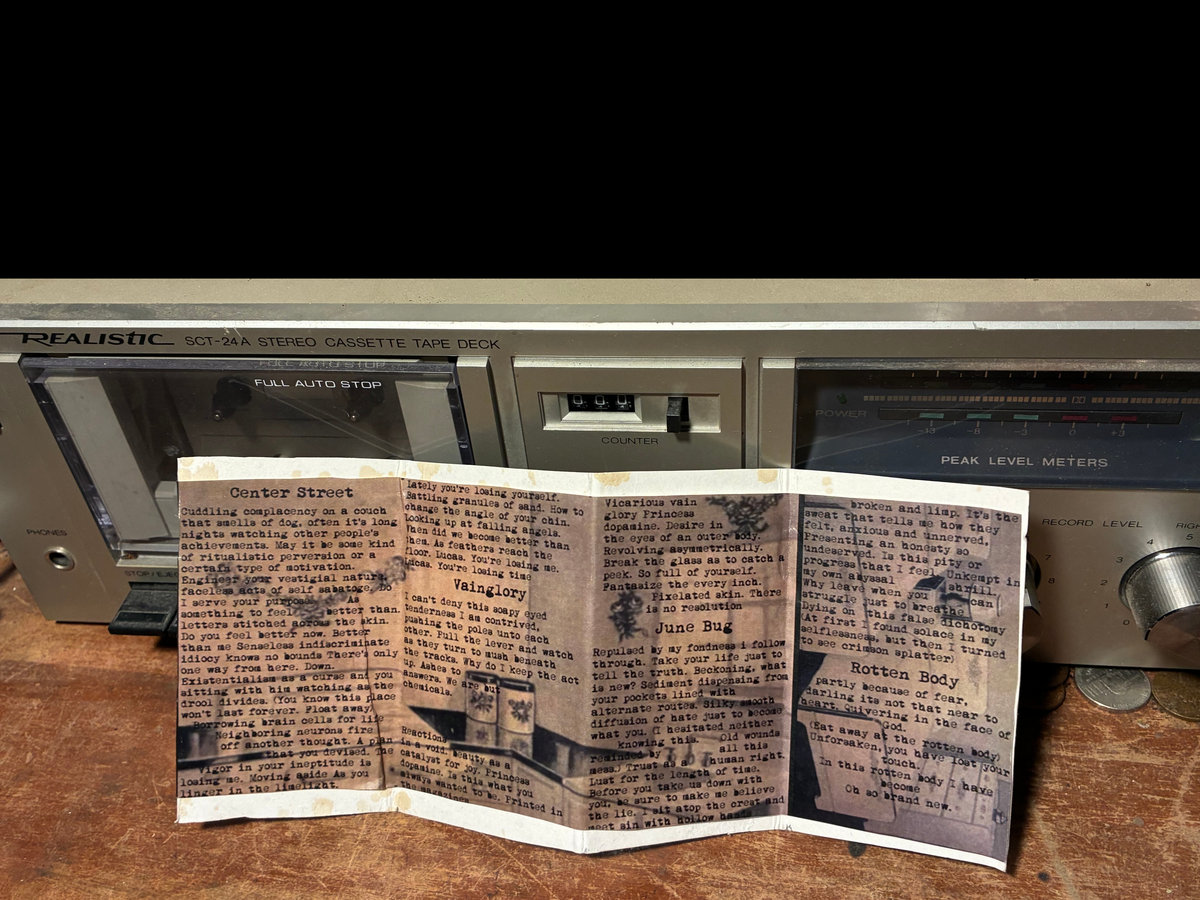 REALISTIC SCT-24A STEREO CASSETTE TAPE DECK
FULL AUTO STOP
000
COUNTER
POWER
-13 -8 -3 0 +3
PEAK LEVEL METERS
PHONES
STOP/EJE
RECORD LEVEL
RIG
0 1 2 3 4 5
7
8
Center Street
Cuddling complacency on a couch
that smells of dog, often it's long
nights watching other people's
achievements. May it be some kind
of ritualistic perversion or a
certain type of motivation.
Engineer your vestigial nature,
faceless acts of self sabatoge. Do
I serve your purpose As
something to feel better than.
letters stitched across the skin.
Do you feel better now. Better
than me Senseless indiscriminate
idiocy knows no bounds There's only
one way from here. Down.
Existentialism as a curse and you
sitting with him watching as the
drool divides. (You know this place
won't last forever. Float away)
Borrowing brain cells for life
Neighboring neurons fire
off another thought. A plan
that you devised. The
Vigor in your ineptitude is
losing me. Moving aside As you
linger in the limelight.
lately you're losing yourself.
Battling granules of sand. How to
change the angle of your chin.
Looking up at falling angels.
When did we become better than
them. As feathers reach the
floor. Lucas. You're losing me.
Lucas. You're losing time
Vainglory
I can't deny this soapy eyed
tenderness I am contrived,
pushing the poles unto each
other. Pull the lever and watch
as they turn to mush beneath
the tracks. Why do I keep the act
up. Ashes to
answers. We are but
chemicals.
Reactions
in a void. Beauty as a
catalyst for joy. Princess
dopamine. Is this what you
always wanted to be. Printed in
the magazines
Vicarious vain
glory Princess
dopamine. Desire in
the eyes of an outer body.
Revolving asymmetrically.
Break the glass as to catch a
peek. So full of yourself.
Fantasize the every inch.
Pixelated skin. There
is no resolution
June Bug
Repulsed by my fondness i follow
through. Take your life just to
tell the truth. Beckoning, what
is new? Sediment dispensing from
your pockets lined with
alternate routes. Silky smooth
diffusion of hate just to become
what you. (I hesitated neither
knowing this. Old wounds
reminded by all this
mess.) Trust as a human right.
Lust for the length of time.
Before you take us down with
you, be sure to make me believe
the lie. I sit atop the crest and
meet sin with hollow hands
broken and limp. It's the
sweat that tells me how they
felt, anxious and unnerved,
Presenting an honesty so
undeserved. Is this pity or
progress that I feel. Unkempt in
my own abyssal shrill.
Why leave when you can
struggle just to breathe
Dying on this false dichotomy
(At first I found solace in my
selflessness, but then I turned
to see crimson splatter)
Rotten Body
partly because of fear,
darling its not that near to
heart. Quivering in the face of
God.
(Eat away at the rotten body)
Unforsaken, you have lost your
touch.
In this rotten body I have
become
Oh so brand new.